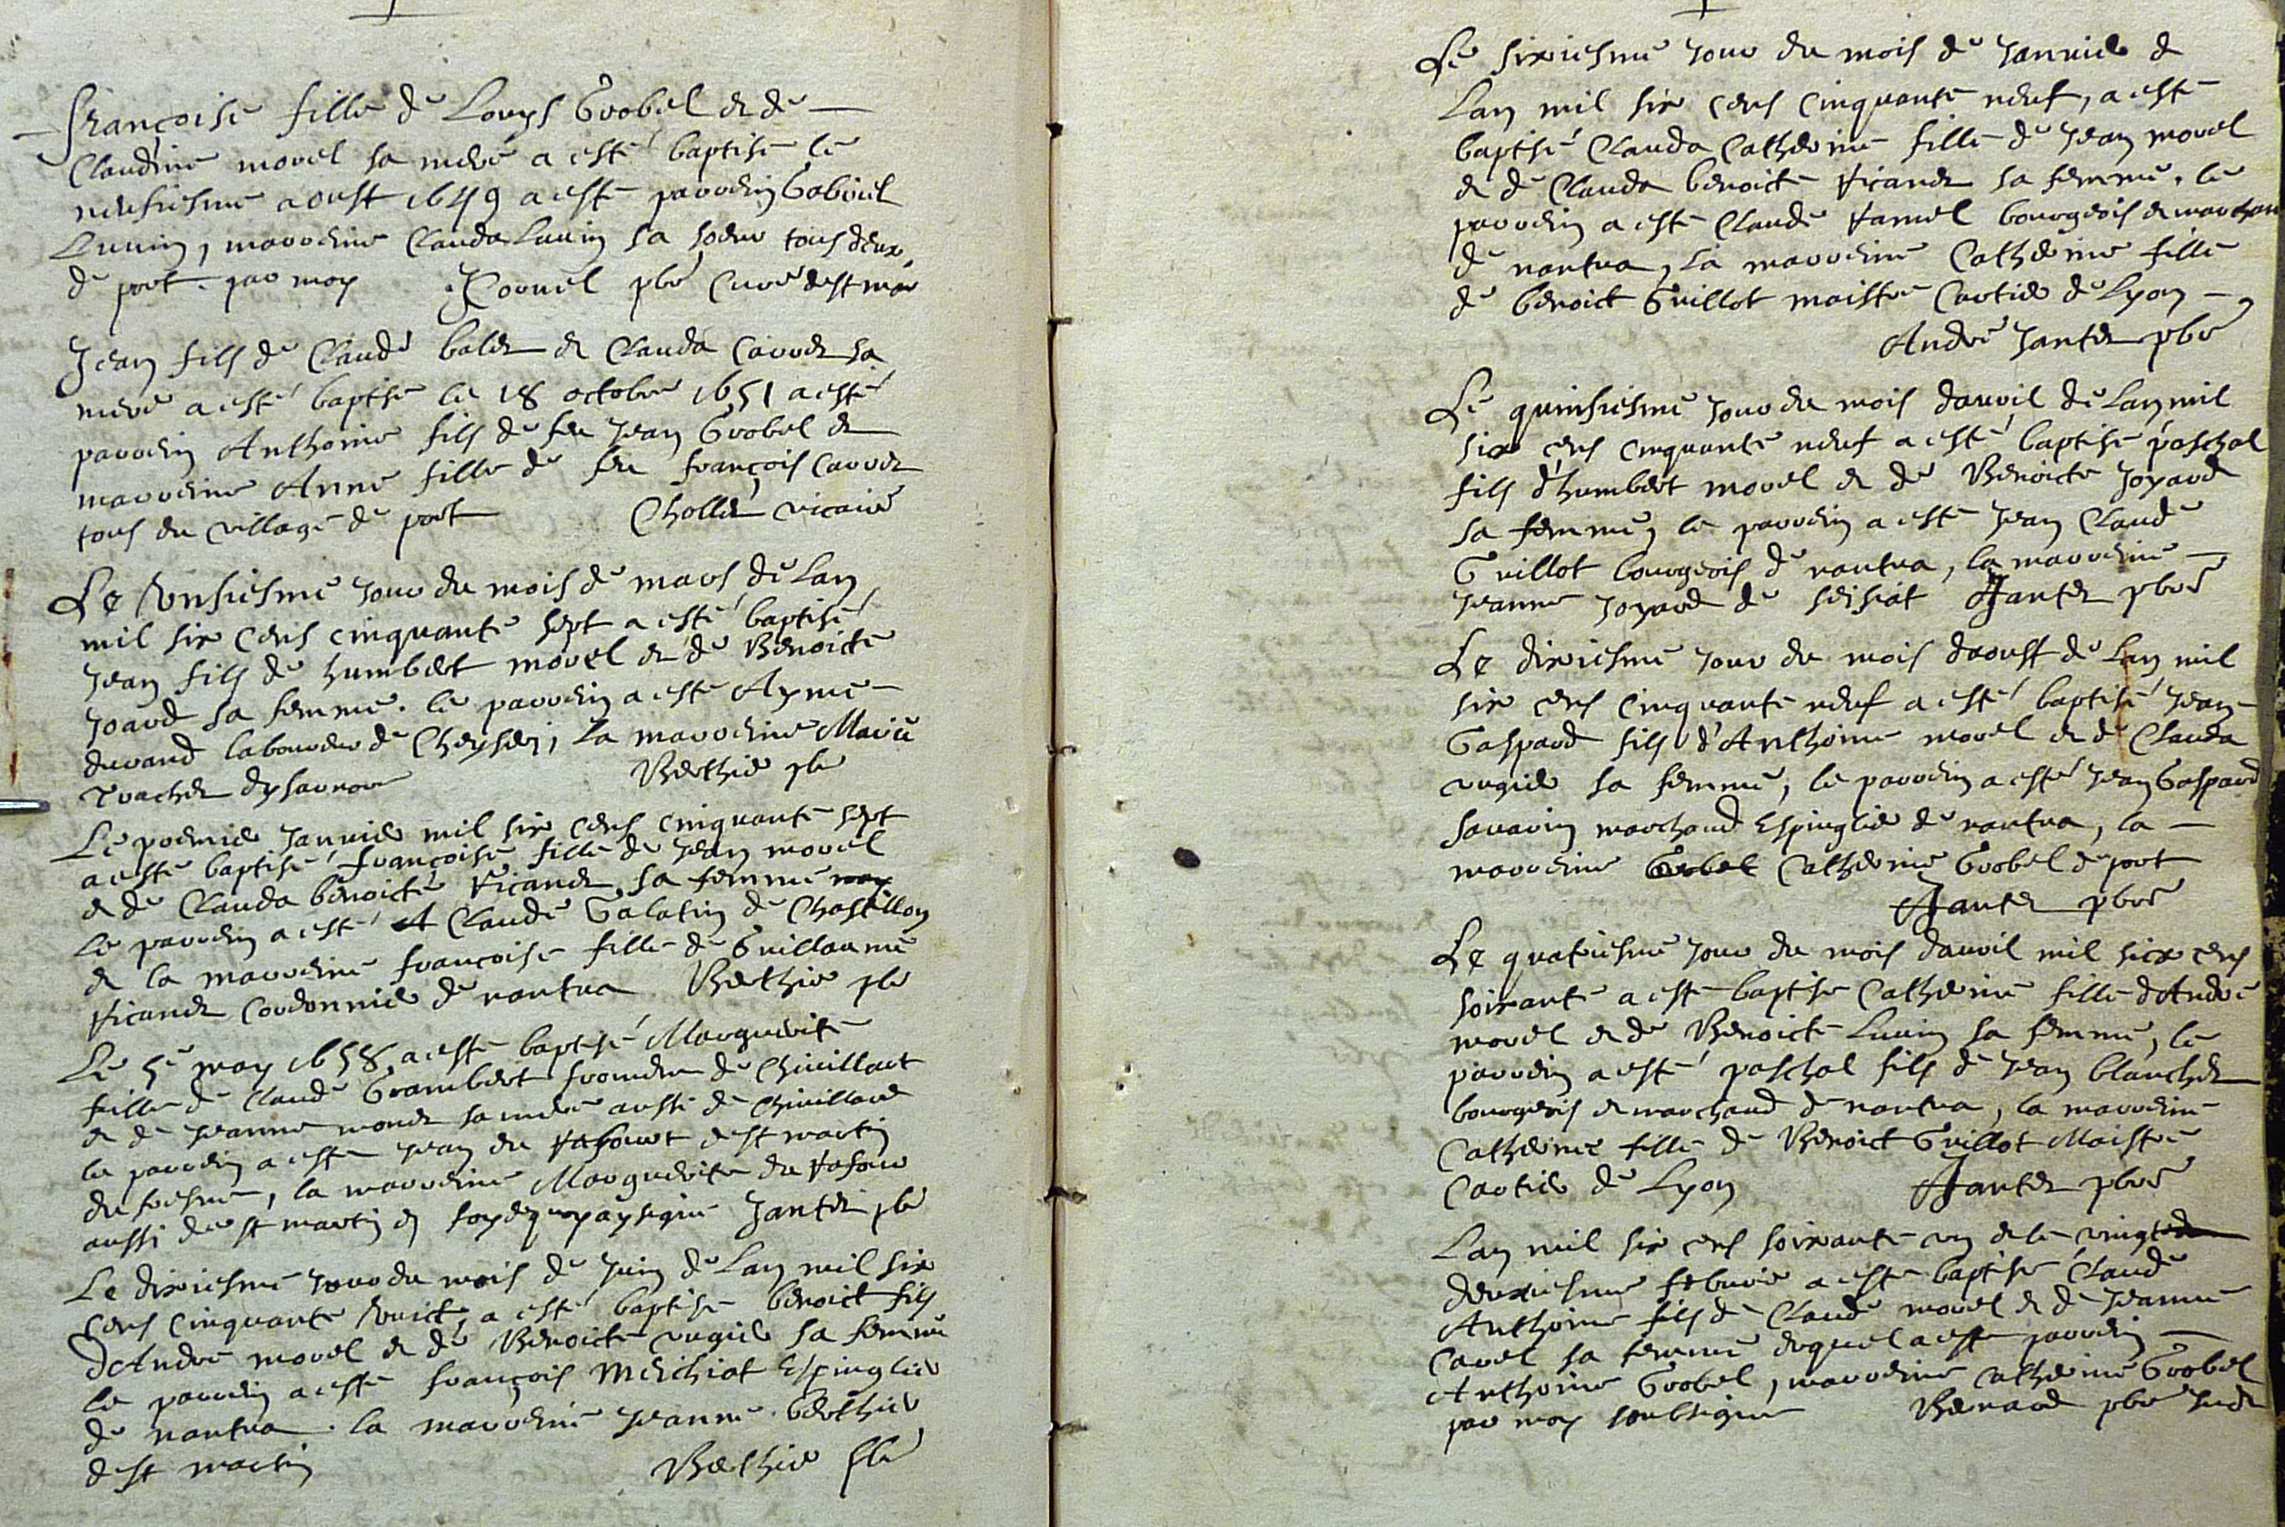 françoise fille de Louys Grobel et de
Claudine morel sa mere a esté baptisé le
neufiesme aoust 1649 a esté parrein Gabriel
Luuin, marreine Clauda Luuin sa soeur tous deux
de port. par moy Cornel pbre Curé de st mar
Jean fils de Claude balet et Clauda Carret sa
mere a esté baptisé le 18 octobre 1651 a esté
parrein Anthoine fils de feu Jean Grobel et
marreine Anne fille de feu françois Carret
tous du village de port Chollet vicaire
Le unsiesme jour du mois de mars de Lan
mil six cens cinquante sept a esté baptisé
Jean fils de humbert morel et de Benoicte
Joard sa femme. le parrein a esté Ayme
durand laboureur de Cheysery, la marreine Marie
Trachet dysarnore Berthier pbr
Le premier Januier mil six cens cinquante sept
a esté baptisé françoise fille de Jean morel
et de Clauda benoicte Vicanet sa femme
le parrein a esté Claude Galatin de Chastillon
et la marreine françoise fille de Guillaume
Vicanet Cordonnier de nantua Berthier pbr
Le 5e may 1658 a esté baptisé Marguerite
fille de Claude Grambert de Chivillart
et de Jeanne monet sa mere aussi de Chivillard
le parrein a esté Jean du Vafour de st martin
du fresne, la marreine Marguerite du Vafour
aussi de st martin Jantet pbr
Le dixiesme jour du mois de Juin de Lan mil six
cens cinquante huict, a esté baptisé benoict fils
dAndre morel et de Benoicte rugier sa femme
le parrein a esté françois Merchiat Espinglier
de nantua. la marreine Jeanne berthier
de st martin Berthier pbr
Le sixiesme jour du mois de Januier de
Lan mil six cens cinquante neuf, a esté
baptisé Clauda Catherine fille de Jean morel
et de Clauda benoicte Vicanet sa femme, le
parrein a esté Claude Vamel bourgeois et marchan
de nantua, la marreine Catherine fille
de benoict Guillot maistre Cartier de Lyon
Andre Jantet pbre
Le quinsiesme jour du mois dauril de Lan mil
six cens cinquante neuf a esté baptisé paschal
fils d'humbert morel et de Benoicte Joyard
sa femme, le parrein a esté Jean Claude
Guillot bourgeois de nantua, la marreine
Jeanne Joyard de seisiat Jantet pbre
Le dixiesme jour du mois daoust de Lan mil
six cens cinquante neuf a esté baptisé Jean
Gaspard fils d'Anthoine morel et de Clauda
rugier sa femme, le parrein a esté Jean Gaspard
sauarin marchand Espinglier de nantua, la
marreine Grobel Catherine Grobel de port
Jantet pbre
Le quatriesme jour du mois dauril mil six cens
soixante a esté baptisé Catherine fille dAndre
morel et de Benoicte Luuin sa femme, le
parrein a esté paschal fils de Jean blanchet
bourgeois et marchand de nantua, la marreine
Catherine fille de Benoict Guillot Maistre
Cartier de Lyon Jantet pbre
Lan mil six cens soixante un et le vingt et
deuxiesme febrier a esté baptisé Claude
Anthoine fils de Claude morel et de Jeanne
Carel sa femme duquel a esté parrein
Anthoine Grobel, marreine Catherine Grobel
par moy soubsigne Bernard pbre